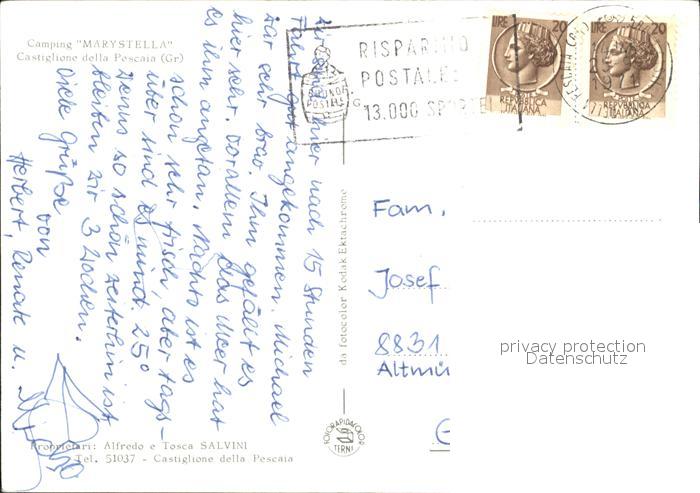 Camping "MARYSTELLA"
Castiglione della Pescaia (Gr)
Wir sind hier nach 15 Stunden
Fahrt gut angekommen. Michael
war sehr brav. Ihm gefällt es
hier sehr. Vor allem das Meer hat
es ihm angetan. Nachts ist es
schon sehr frisch, aber tags-
über sind es mind. 25°
Wenns so schön weiterhin ist
bleiben wir 3 Wochen.
Viele Grüße von
Herbert, Renate u.
Proprietari: Alfredo e Tosca SALVINI
Tel. 51037 - Castiglione della Pescaia
da fotocolor Kodak Ektachrome
FOTORAPIDACOLOR
TERNI
RISPARMIO
POSTALE:
13.000 SPORTELLI
LIRE 20
REPVBBLICA
ITALIANA
LIRE 20
REPVBBLICA
ITALIANA
Fam.
Josef
8831
Altmü
privacy protection
Datenschutz